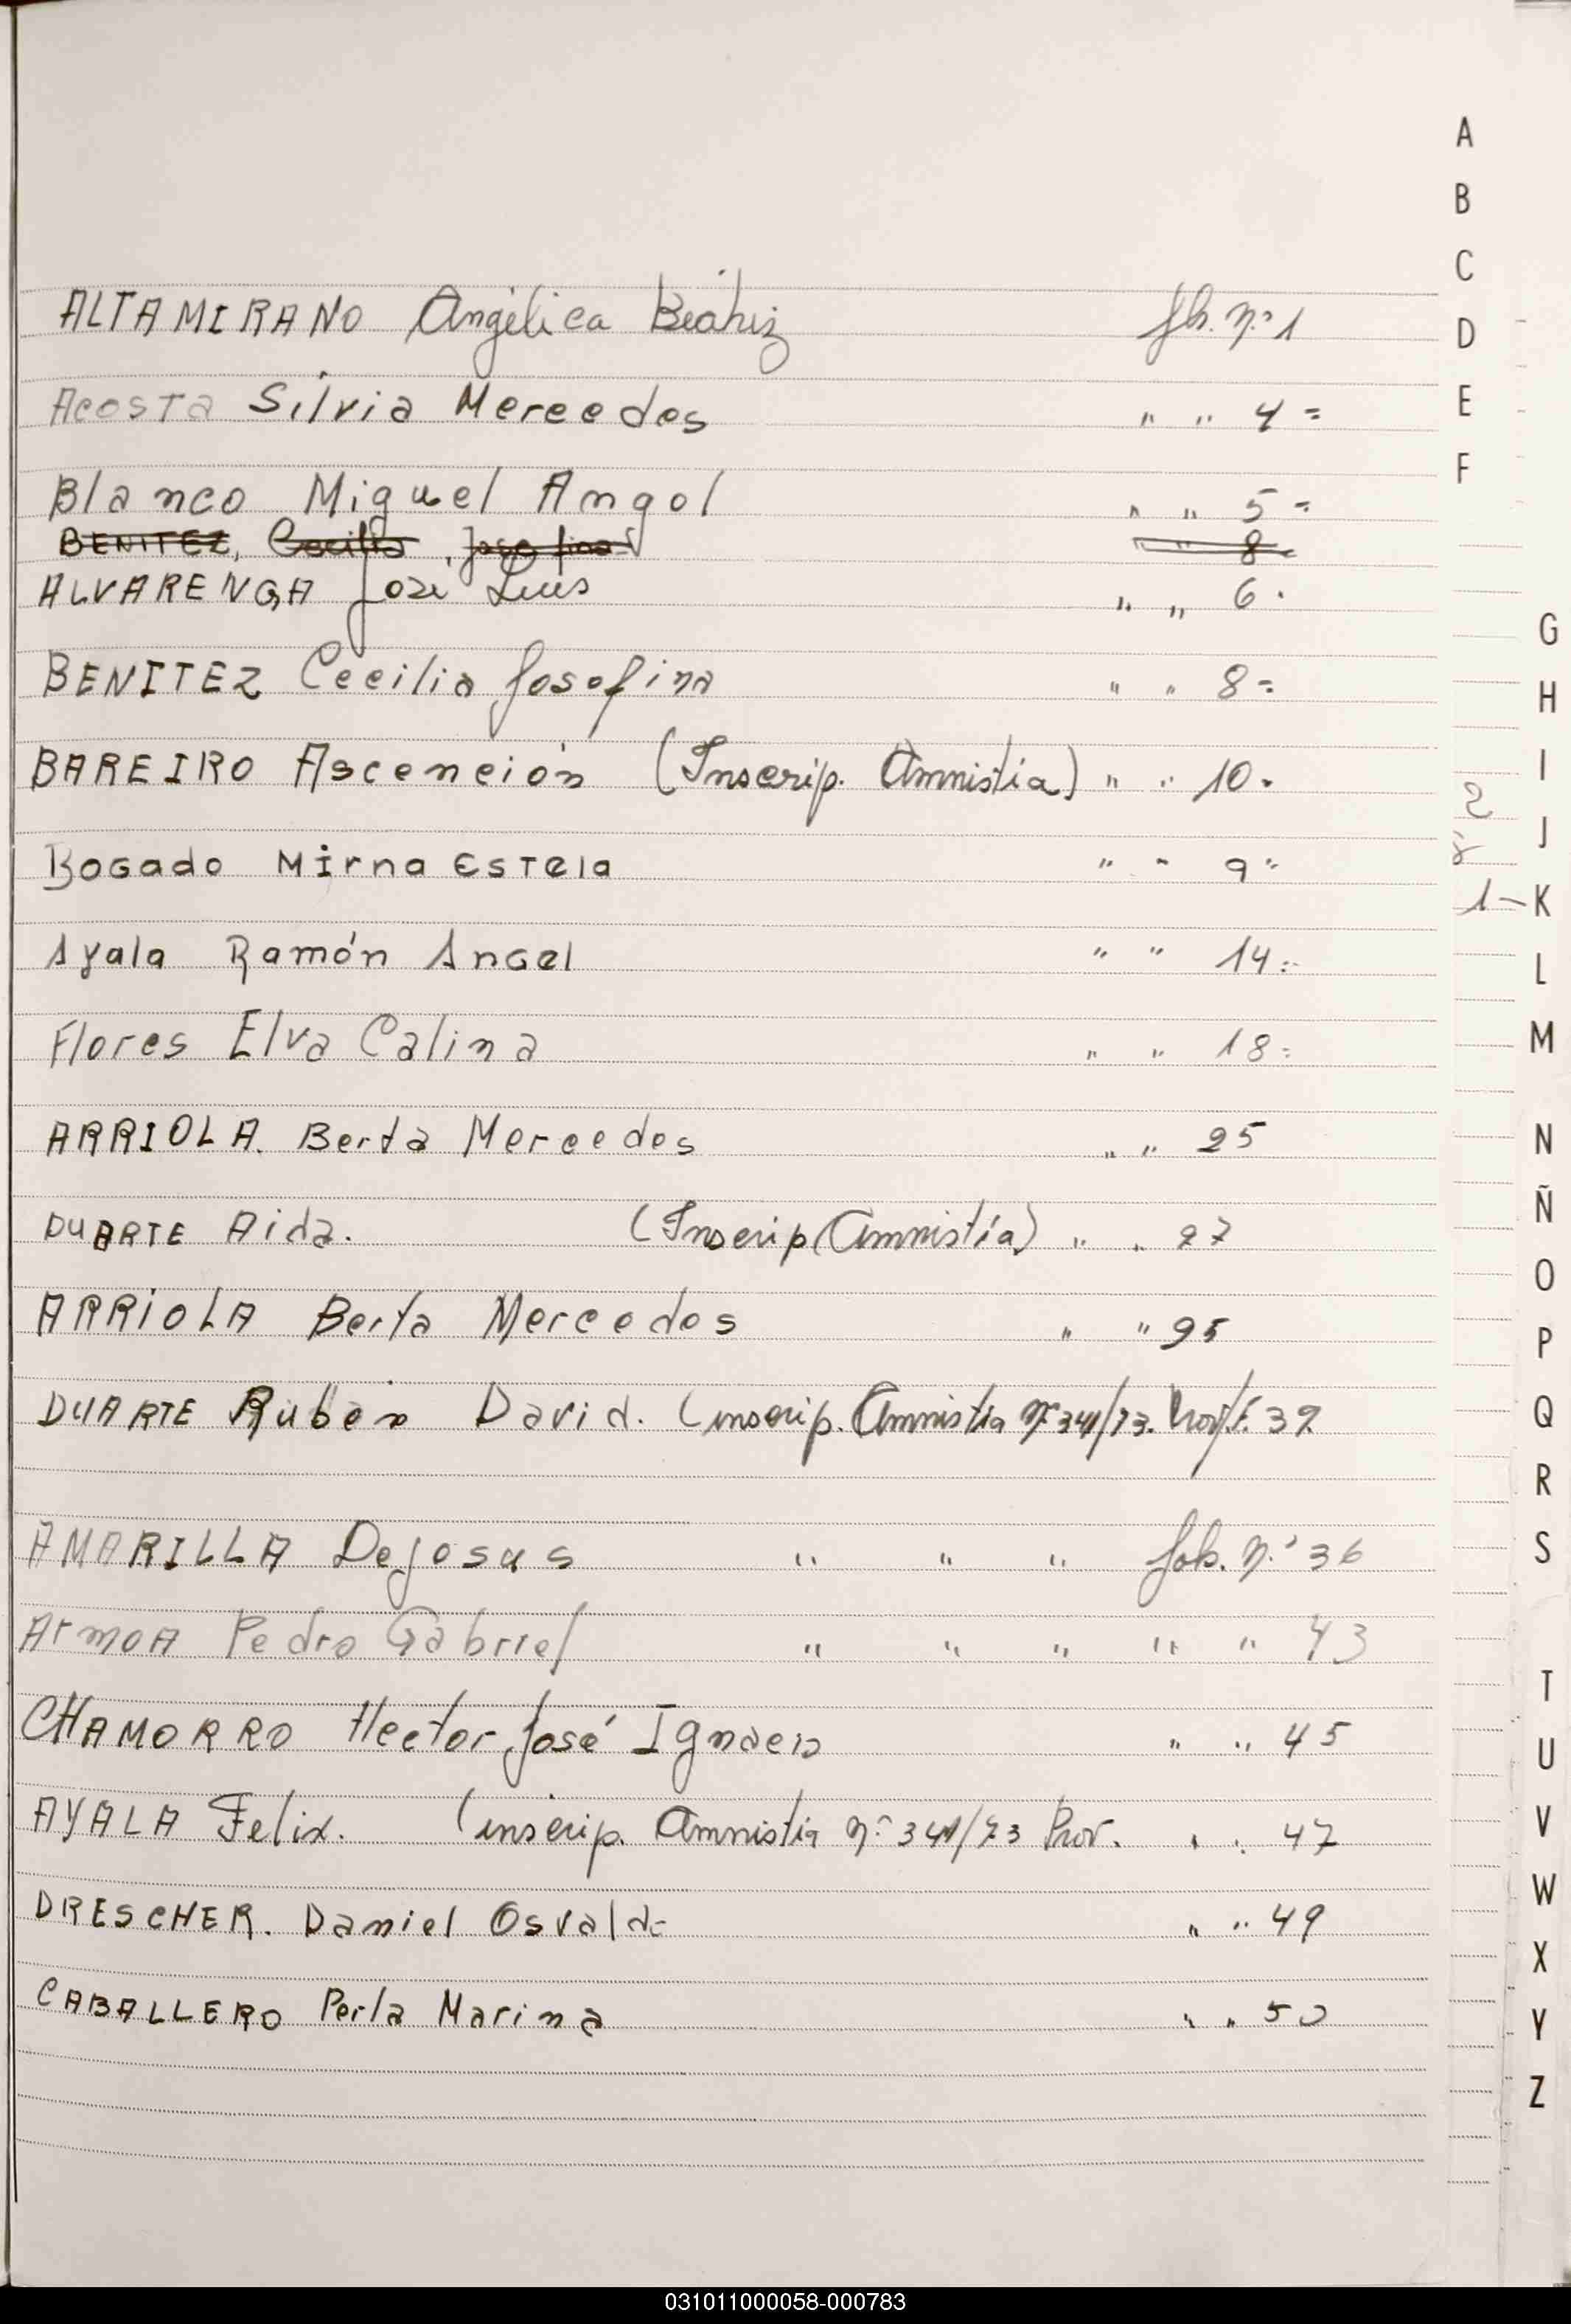 ALTAMIRANO Angélica Beatriz fls. n.º 1
Acosta Silvia Mercedes " " 4 =
Blanco Miguel Angel " " 5 =
BENITEZ, Cecilia, Josefina " " 8 =
ALVARENGA José Luis " " 6 .
BENITEZ Cecilia Josefina " " 8 =
BAREIRO Ascención (Inscrip. Amnistia) " " 10.
BOGADO MIRNA ESTELA " " 9 "
Ayala Ramón Angel " " 14 =
Flores Elva Calina " " 18 =
ARRIOLA. Berta Mercedes " " 25
DUARTE Aida. (Inscrip. Amnistía) " " 27
ARRIOLA Berta Mercedes " " 25
DUARTE Rubén David. (inscrip. Amnistia n.º 341/73. Prov/f. 32
AMARILLA DeJesus " " " fols. n.º 36
Armoa Pedro Gabriel " " " " " 43
CHAMORRO Hector José Ignacio " " 45
AYALA Felix. (inscrip. Amnistia n.º 341/73 Prov. " " 47
DRESCHER. Daniel Osvaldo " " 49
CABALLERO Perla Marina " " 50
A
B
C
D
E
F
G
H
I
2
J
8
1- K
L
M
N
Ñ
O
P
Q
R
S
T
U
V
W
X
Y
Z
031011000058-000783